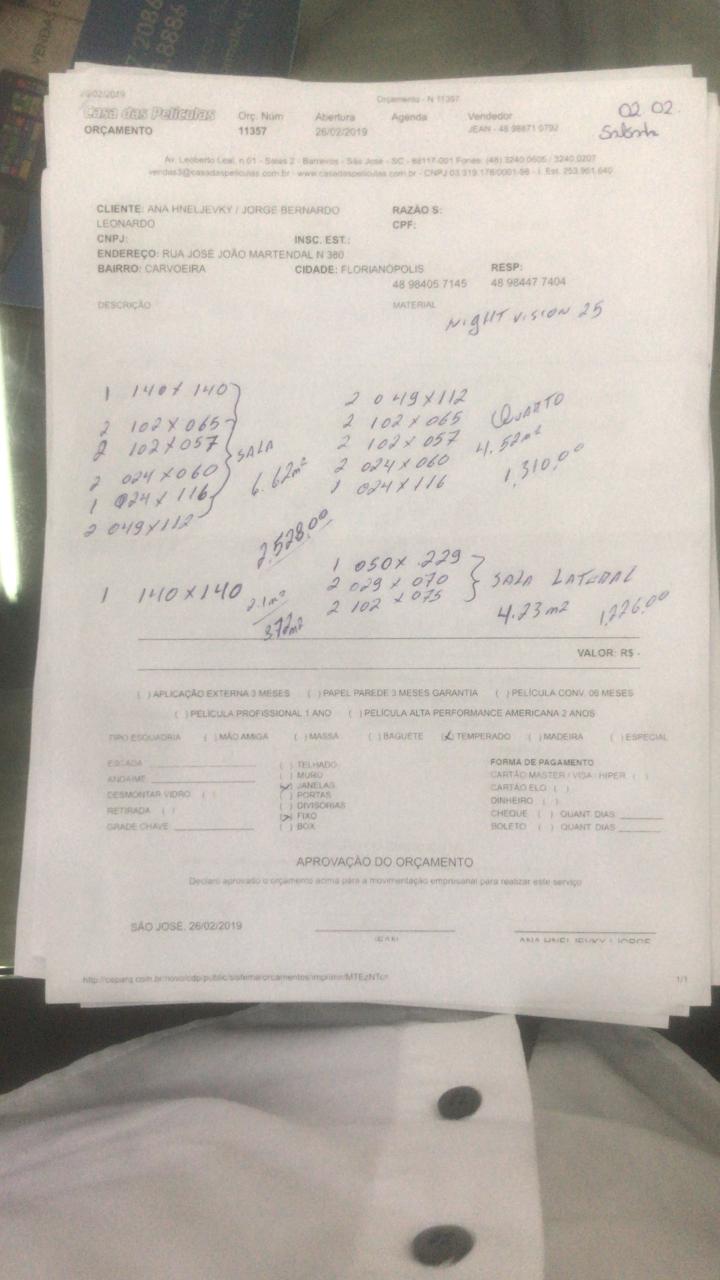 VENDAS E
7 2086
8886
26/02/2019
Orçamento - N 11357
Casa das Películas
Orç. Núm Abertura Agenda Vendedor
02.02.
ORÇAMENTO 11357 26/02/2019 JEAN - 48 98871 0792
Av. Leoberto Leal, n.01 - Salas 2 - Barreiros - São José - SC - 88117-001 Fones: (48) 3240.0605 / 3240.0207
vendas3@casadaspeliculas.com.br - www.casadaspeliculas.com.br - CNPJ 03.319.178/0001-98 - I. Est. 253.961.640
CLIENTE: ANA HNELJEVKY / JORGE BERNARDO RAZÃO S:
LEONARDO CPF:
CNPJ: INSC. EST.:
ENDEREÇO: RUA JOSÉ JOÃO MARTENDAL N 380
BAIRRO: CARVOEIRA CIDADE: FLORIANÓPOLIS RESP:
48 98405 7145 48 98447 7404
DESCRIÇÃO MATERIAL
NIGHT VISION 25
1 140 x 140
2 102 x 065
2 102 x 057
2 024 x 060
1 024 x 116
2 049 x 112
SALA
6.62m²
2.528,00
2 049 x 112
2 102 x 065
2 102 x 057
2 024 x 060
1 024 x 116
QUARTO
4.52m²
1,310,00
1 140 x 140
2.1m²
3.72m²
1 050 x .229
2 029 x 070
2 102 x 075
SALA LATERAL
4.23 m2 1,226,00
VALOR: R$ -
( ) APLICAÇÃO EXTERNA 3 MESES ( ) PAPEL PAREDE 3 MESES GARANTIA ( ) PELÍCULA CONV. 06 MESES
( ) PELÍCULA PROFISSIONAL 1 ANO ( ) PELÍCULA ALTA PERFORMANCE AMERICANA 2 ANOS
TIPO ESQUADRIA ( ) MÃO AMIGA ( ) MASSA ( ) BAGUETE (x) TEMPERADO ( ) MADEIRA ( ) ESPECIAL
ESCADA
ANDAIME
DESMONTAR VIDRO ( )
RETIRADA ( )
GRADE CHAVE
( ) TELHADO
( ) MURO
(x) JANELAS
( ) PORTAS
( ) DIVISÓRIAS
(x) FIXO
( ) BOX
FORMA DE PAGAMENTO
CARTÃO MASTER / VISA / HIPER ( )
CARTÃO ELO ( )
DINHEIRO ( )
CHEQUE ( ) QUANT. DIAS
BOLETO ( ) QUANT DIAS
APROVAÇÃO DO ORÇAMENTO
Declaro aprovado o orçamento acima para a movimentação empresarial para realizar este serviço
SÃO JOSÉ, 26/02/2019
JEAN ANA HNELJEVKY / JORGE
1/1